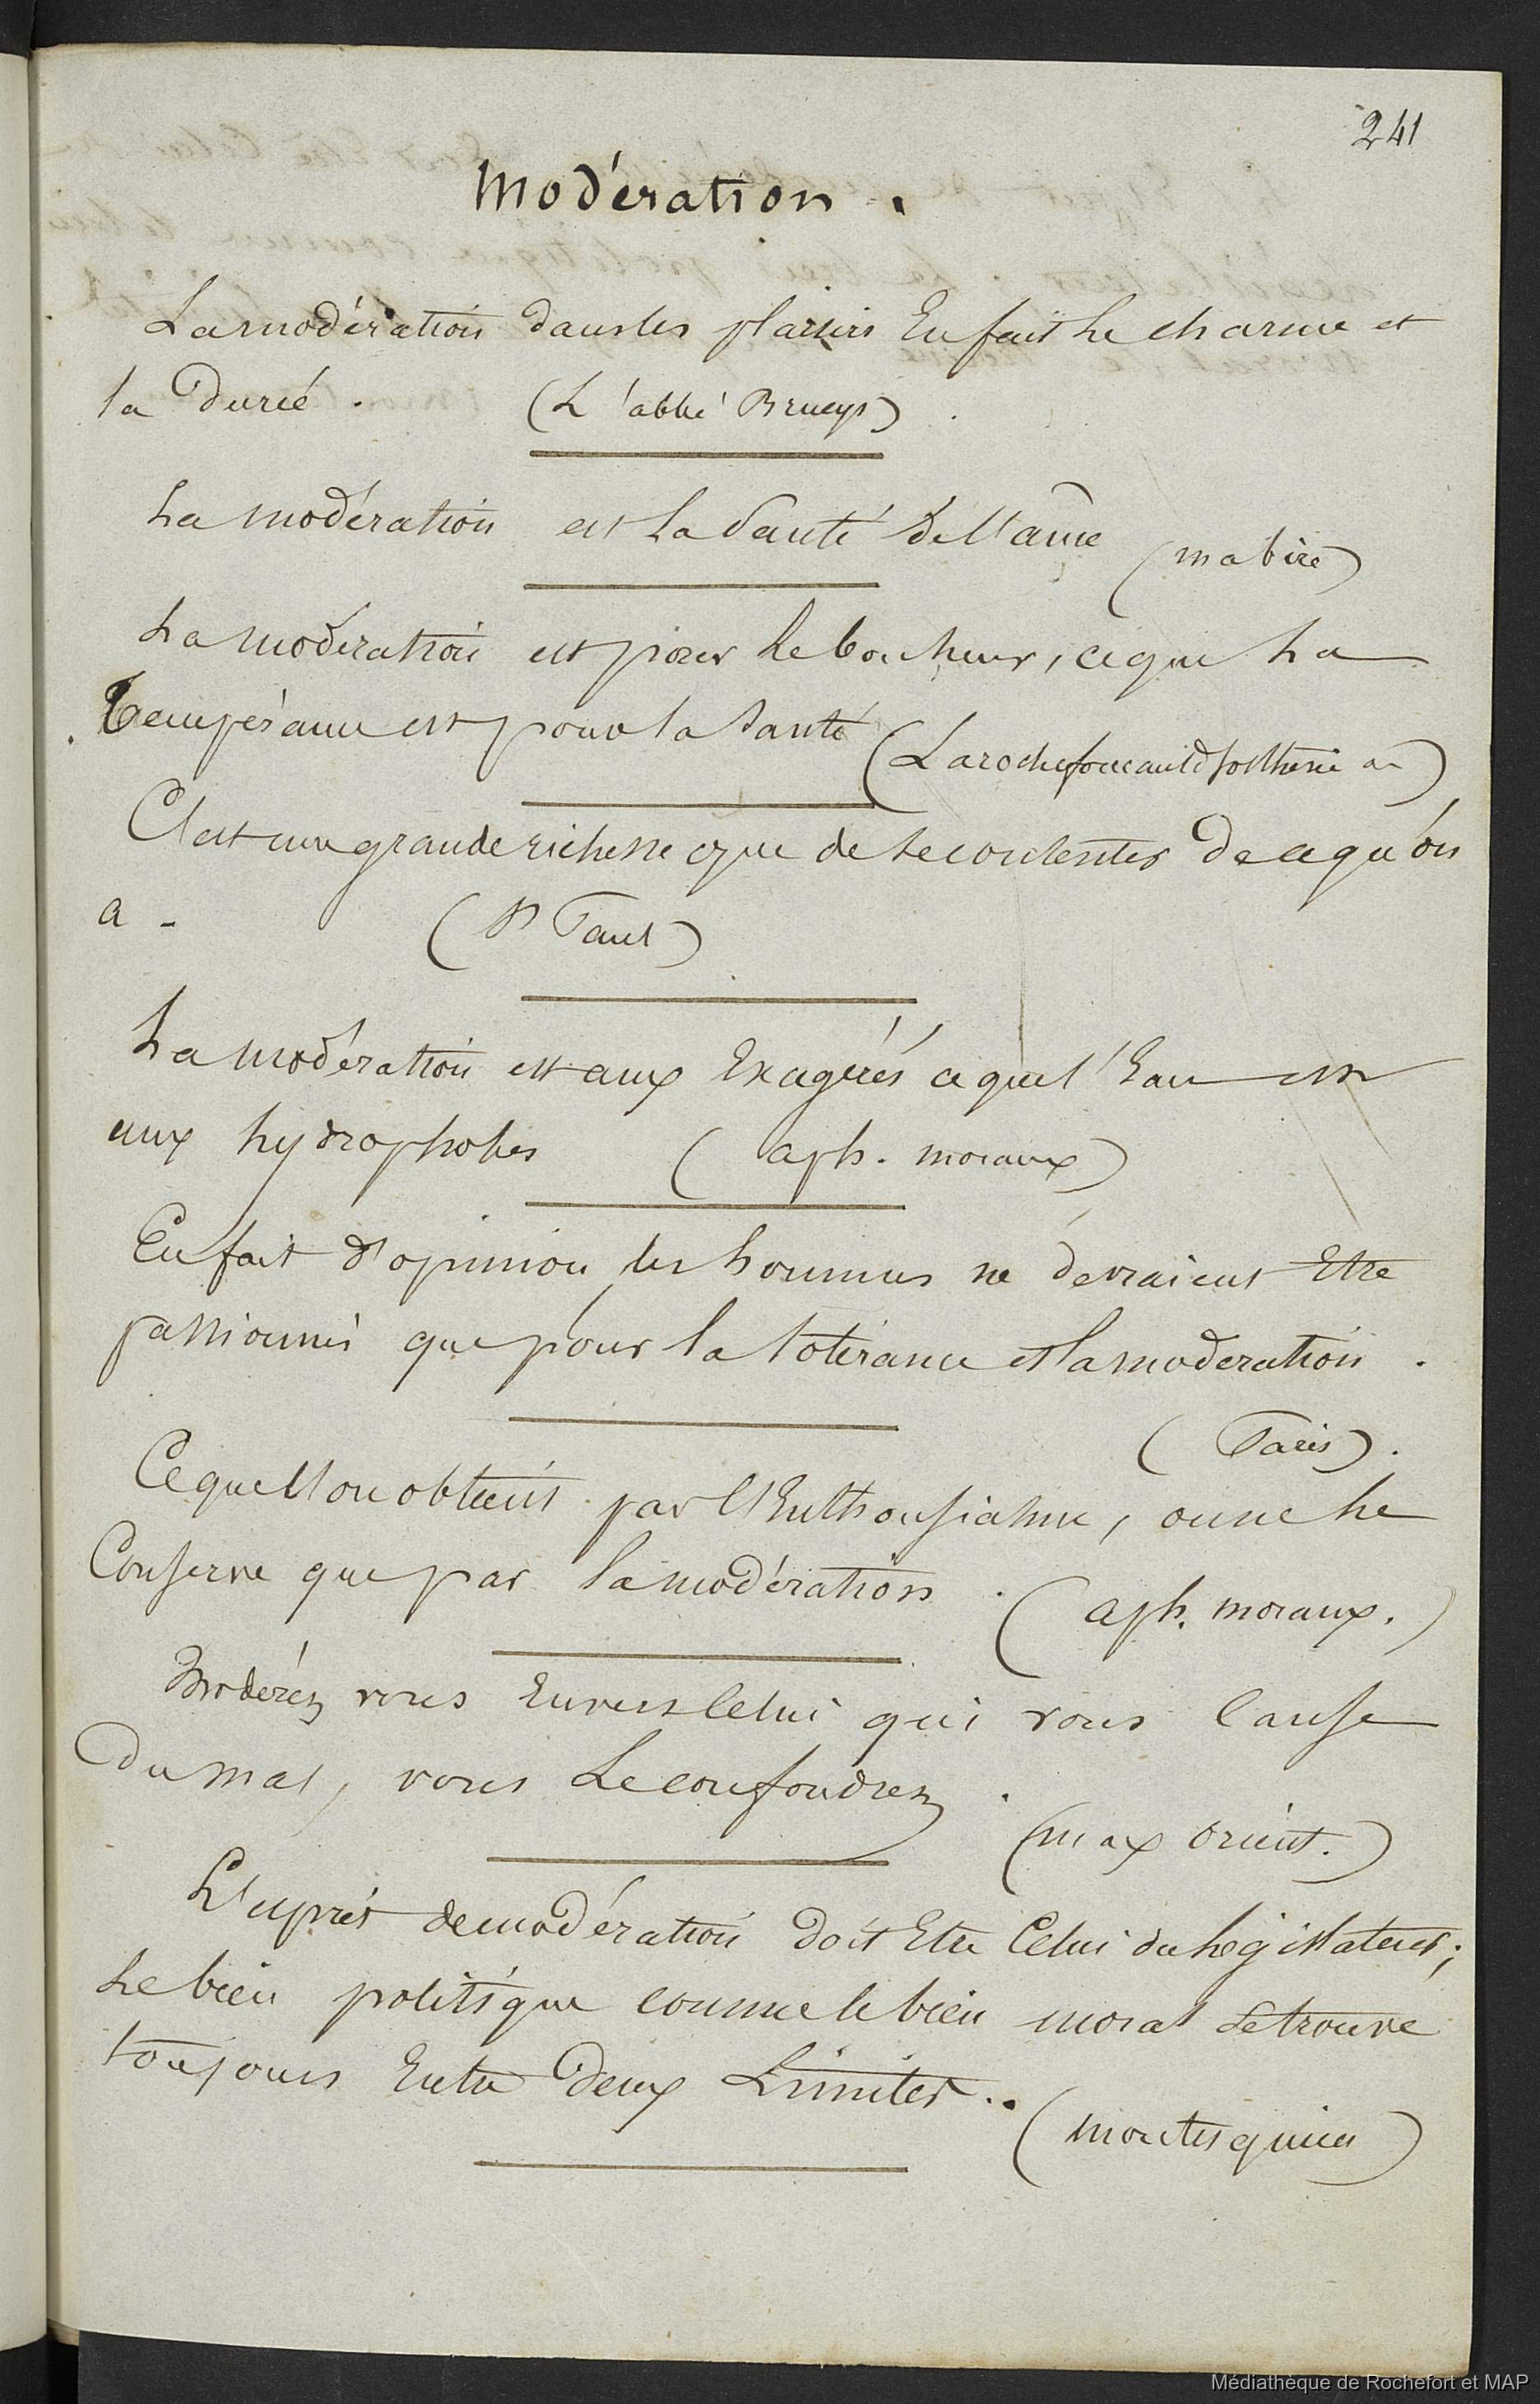 241
Modération.
La modération dans les plaisirs En fait le charme et
la Durée. (L'abbé Brueys).
La modération est la Santé de l'âme (mabire)
La modération est pour le bonheur, ce que la
tempérance est pour la santé (Larochefoucauld
C'est une grande richesse que de se contenter de ce qu'on
a. (St Paul)
La modération est aux Exagérés ce que l'Eau est
aux hydrophobes (aph. moraux)
En fait d'opinion les hommes ne devraient Etre
passionnés que pour la tolérance et la moderation.
(Paris).
Ce que l'on obtient par l'Enthousiasme, on ne le
Conserve que par la modération. (aph. moraux.)
Modérez vous Envers Celui qui vous Cause
Du mal, vous Le confondrez.
(max orient.)
L'esprit de modération doit Etre Celui du Législateur;
Le bien politique comme le bien moral se trouve
toujours Entre Deux Limites..
(montesquieu)
Médiathèque de Rochefort et MAP